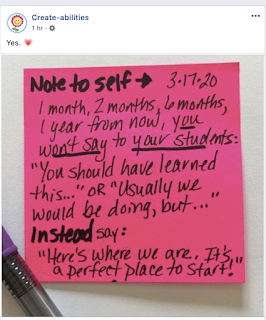 Create-abilities
1 hr ·
Yes.
Note to self → 3·17·20
1 month, 2 months, 6 months,
1 year from now, you
won't say to your students:
"You should have learned
this..." OR "Usually we
would be doing, but..."
Instead say:
"Here's where we are. It's
a perfect place to start!"